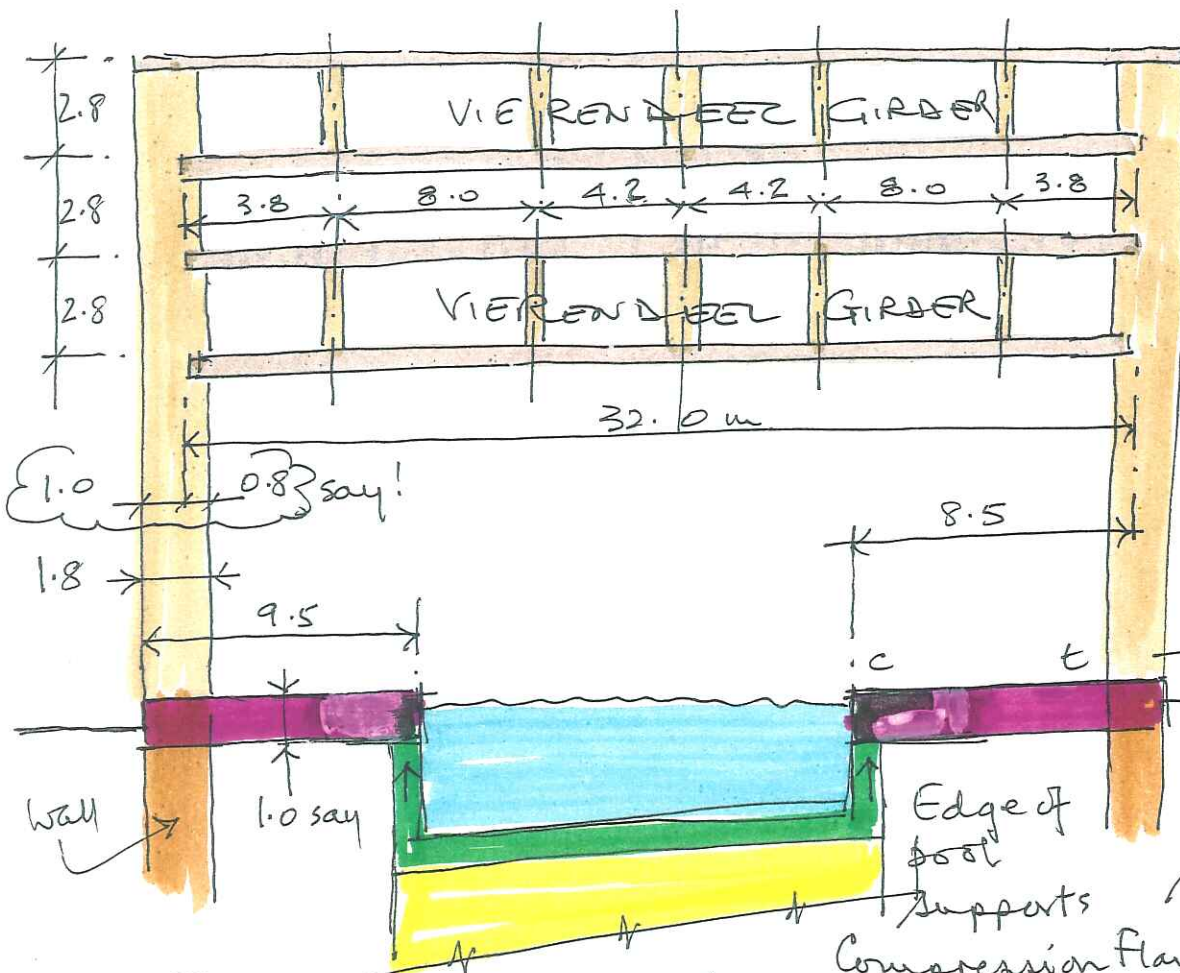 2.8
VIERENDEEL GIRDER
2.8
3.8 8.0 4.2 4.2 8.0 3.8
2.8
VIERENDEEL GIRDER
32.0 m
1.0 0.8 say!
8.5
1.8
9.5
c t
Wall
1.0 say
Edge of
pool
supports
Compression Flan